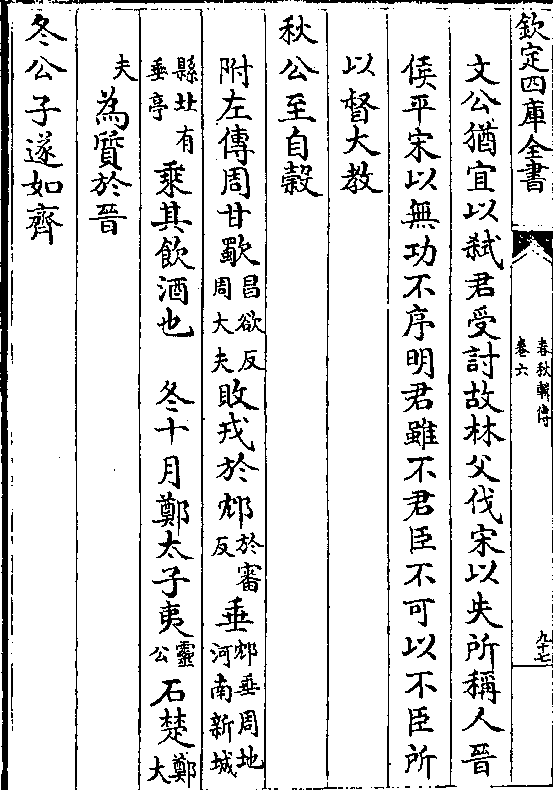 欽定四庫全書
春秋輯傳
卷六
九十七
文公猶宜以弒君受討故林父伐宋以失所稱人晉
侯平宋以無功不序明君雖不君臣不可以不臣所
以督大教
秋公至自穀
附左傳周甘歜昌欲反周大夫敗戎於邥於審反垂邥垂周地河南新城
縣北有垂亭乘其飲酒也 冬十月鄭太子夷靈公石楚鄭大
夫為質於晉
冬公子遂如齊